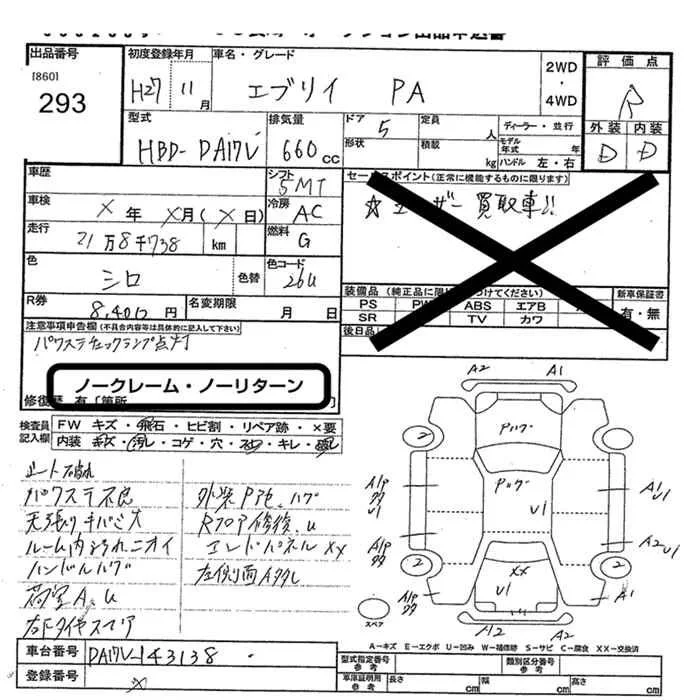 出品番号
[860]
293
初度登録年月
H27 11月
車名・グレード
エブリイ PA
2WD
・
4WD
評価点
R
外装 内装
D D
型式
HBD-DA17V
排気量
660cc
ドア
5
形状
定員
人
積載
kg
ディーラー・並行
モデル年式 年
ハンドル 左・右
車歴
シフト
5MT
セールスポイント(正常に機能するものに限ります)
☆ユーザー買取車!!
車検
X年 X月(X日)
冷房
AC
走行
21万8千738 km
燃料
G
色
シロ
色替
色コード
26U
R券
円
名変期限
月 日
装備品
PS PW ABS エアB
SR TV カワ
後日品
新車保証書
有・無
注意事項申告欄(不具合内容等は具体的に記入して下さい)
パワステチェックランプ点灯
ノークレーム・ノーリターン
修復歴 有[箇所
検査員記入欄
FW キズ・飛石・ヒビ割・リペア跡・×要
内装 キズ・汚れ・コゲ・穴・キレ・
シート破れ
パワステ不良
天張りキバミ大
ルーム内汚れニオイ
ハンドルハゲ
荷室A、U
右下タイヤスマア
外装Pア色、ハゲ
Rフロア修復、u
エンドパネルXX
左側面Aタタし
A2 A1
Pハゲ
2 2
Pハゲ
U1
A1P
U1
A1
U1
A1P
A2 U1
2 2
XX
U1
A1P
A1
スペア
A2 A2
A-キズ E-エクボ U-凹み W-補修跡 S-サビ C-腐食 XX-交換済
車台番号
DA17V-143138
登録番号
X
型式指定番号
参考
類別区分番号
参考
車庫証明用
参考
長さ cm
幅 cm
高さ cm